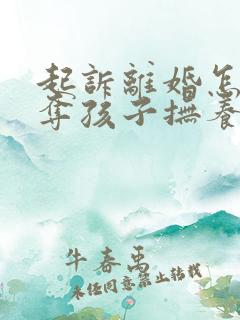 起訴離婚怎
奪孩子撫養
牛春禹
未经同意禁止转载